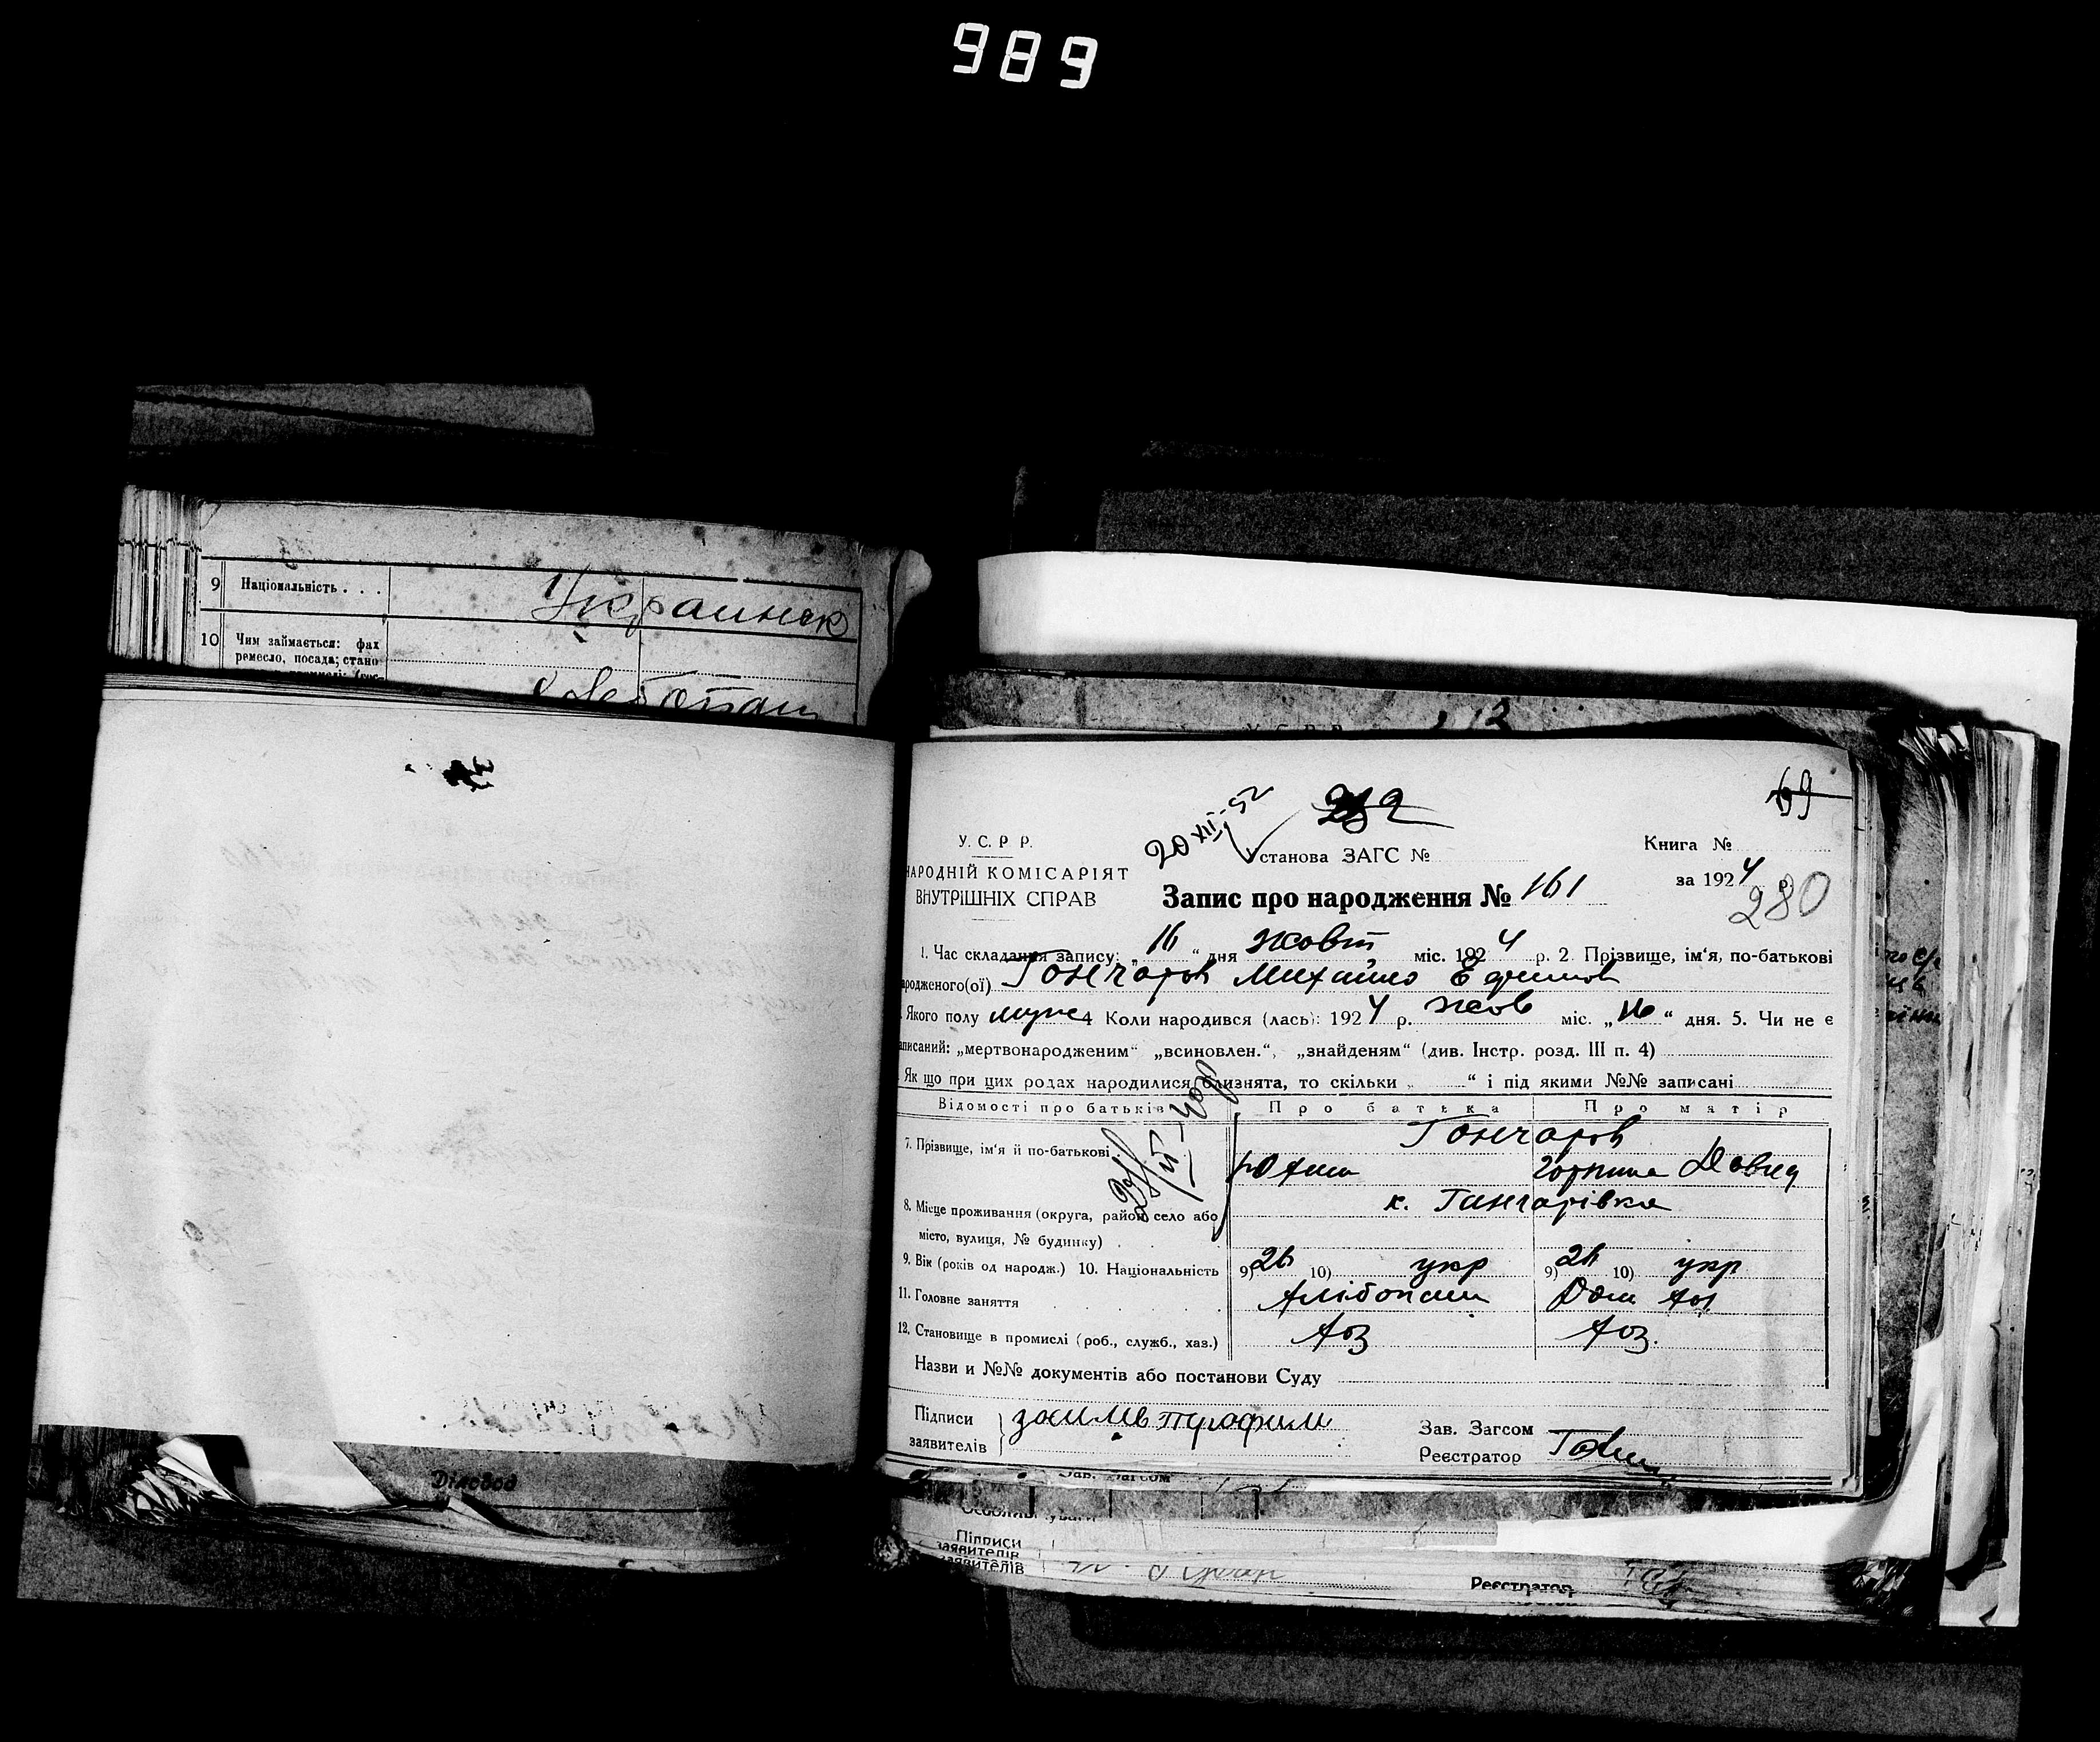 989
9 Національність . . .
Украинск
10 Чим займається: фах
ремесло, посада; стано
Діловод
69
20 XII-52
У. С. Р. Р.
Установа ЗАГС №
Книга №
НАРОДНІЙ КОМІСАРІЯТ
за 1924 р.
ВНУТРІШНІХ СПРАВ
Запис про народження № 161
280
1. Час складання запису: „16“ дня жовт міс. 1924 р. 2 Прізвище, ім'я, по-батькові
народженого(ої) Гончаров Михайло Ефимов
Якого полу муж 4 Коли народився (лась): 1924 р. жов міс. „16“ дня. 5. Чи не є
записаний: „мертвонародженим“ „всиновлен.“, „знайденям“ (див. Інстр. розд. III п. 4)
Як що при цих родах народилися близнята, то скільки „ “ і під якими №№ записані
Відомості про батьків
Про батька
Про матір
Гончаров
7. Прізвище, ім'я й по-батькові .
Юхим
Горпина Давид
к. Ганчарівка
8. Місце проживання (округа, район село або
місто, вулиця, № будинку) .
9. Вік (років од народж.) 10. Національність
9) 26 10) укр
9) 10) укр
11. Головне заняття
Хлібопаш
Дом хоз
12. Становище в промислі (роб., служб., хаз.)
хоз
хоз.
Назви и №№ документів або постанови Суду
Підписи
заявителів
Зав. Загсом
Реєстратор
Зав. Загсом
Підписи
заявителів
заявителів
Реєстратор